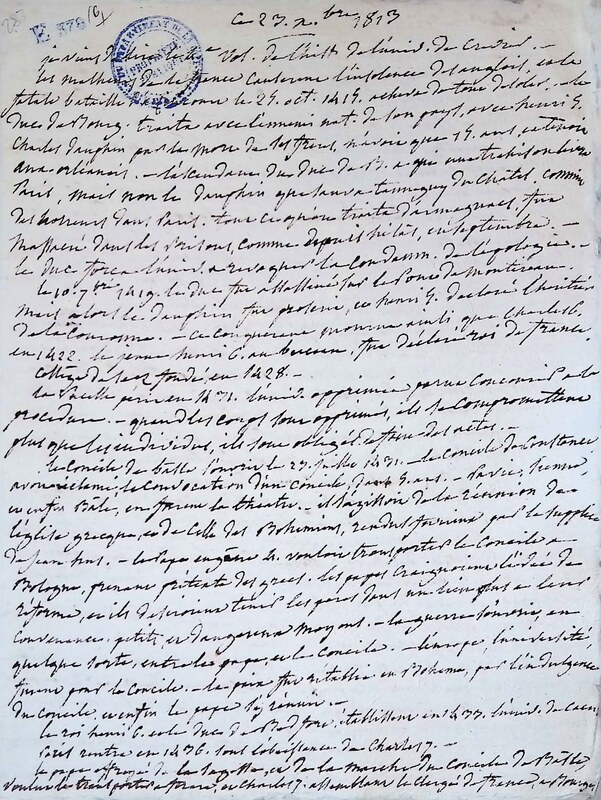 E 378/6
ce 23. Xbre 1813
je viens de lire le Vol. de l'hist. de l'univ. de crevier. –
les malheurs de la france causerent l'insolence des anglois, et la
fatale bataille le 25. oct. 1415. acheva de tout désoler. – le
duc de Bourg. traita avec l'ennemi nat. de son pays, avec henri 5.
Charles dauphin par la mort de ses freres, n'avoit que 15. ans, et tenoit
aux orleanois. – l'ascendant du duc de B. a qui une trahison livra
Paris, mais non le dauphin que sauva tannegui du Châtel, comme
des horreurs dans Paris. tout ce qu'on traita d'armagnacs, fut
massacré dans les Prisons, comme depuis hélas, en septembre. –
le duc força l'univ. a revoquer la condamn. de l'apologie. –
le 10. 7bre 1419. le duc fut assassiné sur le Pont de Montereau.
mais alors le dauphin fut proscrit, et henri 5. declaré l'heritier
de la couronne. – ce conquerant mourut ainsi que charles 6.
en 1422. le jeune henri 6. au berceau, fut déclaré roi de france
collège de fondé en 1428. –
la Pucelle périt en 1431. l'univ. opprimée parut concourir a la
procédure. – quand les corps sont opprimés, ils se compromettent
plus que les individus, ils sont obligés de faire des actes. –
le Concile de basle s'ouvrit le 23. juillet 1431. – le Concile de Constance
avoit la convocation d'un concile, 5. ans. – Pavie, Sienne,
et enfin Bâle, en furent le théatre. – il s'agissoit de la réunion de
l'église grecque, et de celle des Bohemiens, rendus furieux par le supplice
de jean hus. – le Pape eugène 4. vouloit transporter le Concile a
Bologne, prenant prétexte des grecs. les papes craignoient l'idée de
reforme, et ils desiroient tenir les peres dans un lieu plus a leur
convenance. petits, et dangereux moyens. – la guerre s'ouvrit, en
quelque sorte, entre le pape, et le concile. – l'europe, l'université
furent pour le Concile. – la paix fut rétablie en Boheme, par l'indulgence
du Concile, et enfin le pape s'y réunit. –
le roi henri 6. et le duc de Bedfort, établissent en 1433. l'univ. de Caen
Paris rentre en 1436. sous l'obéissance de Charles 7. –
le pape de la sagesse, et de la marche du Concile de Bâle,
voulut le transporter a ferrare, et Charles 7. assemblant le clergé de france, a Bourges